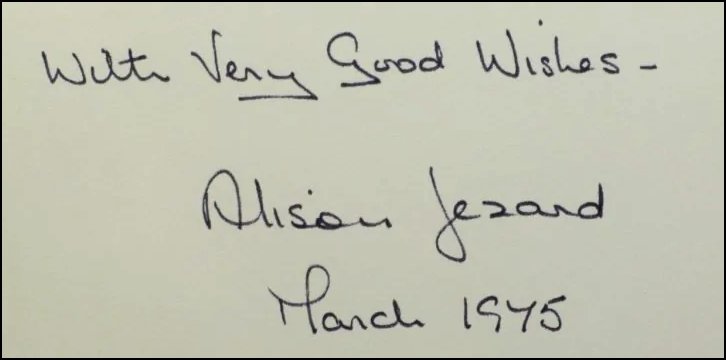 With Very Good Wishes -
Alison Jezard
March 1975